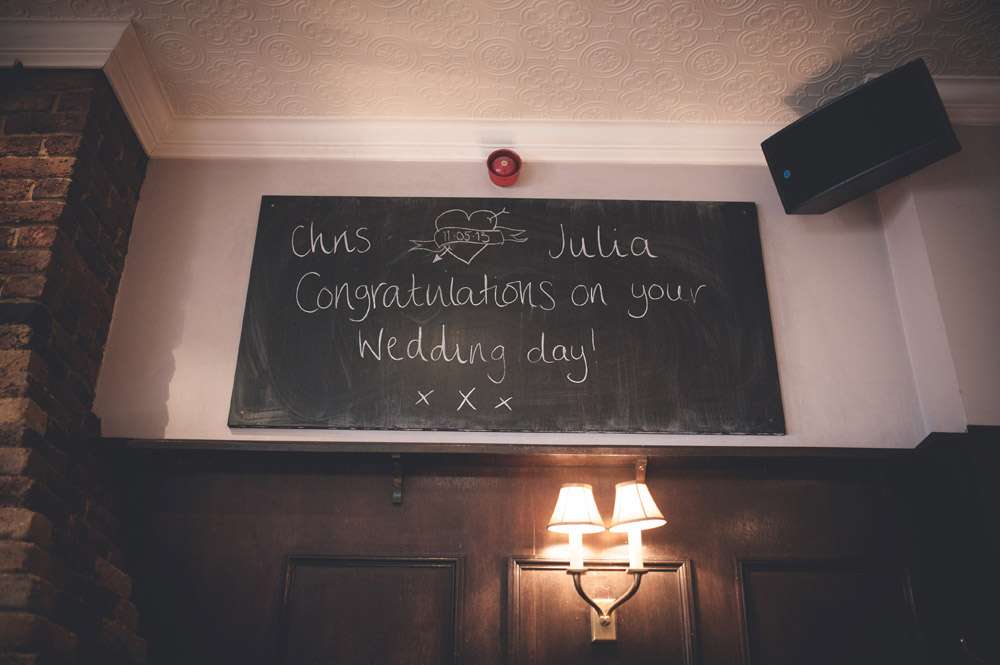 Chris 11.05.15 Julia
Congratulations on your
Wedding day!
x X x